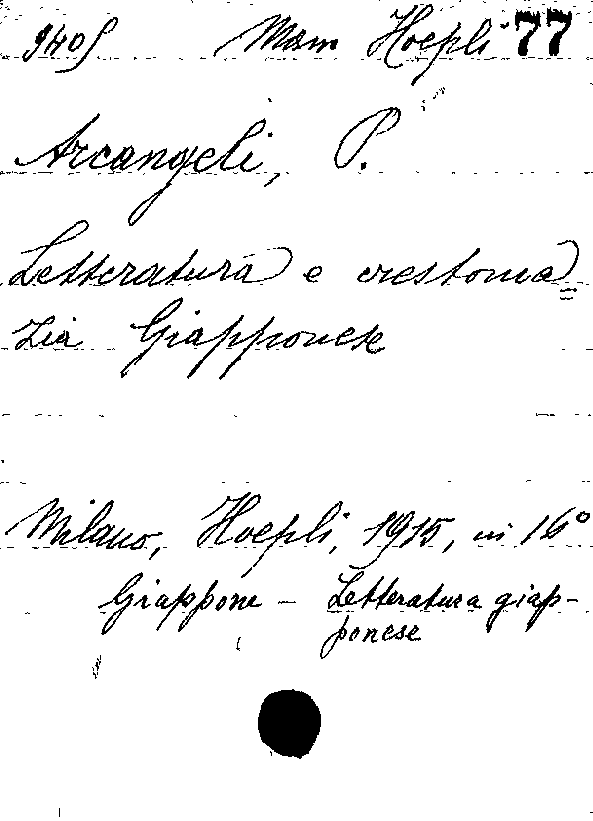 9405 Man Hoepli 77
Arcangeli, P.
Letteratura e crestoma=
zia Giapponese
Milano, Hoepli, 1915, in 16°
Giappone - Letteratura giap-
ponese